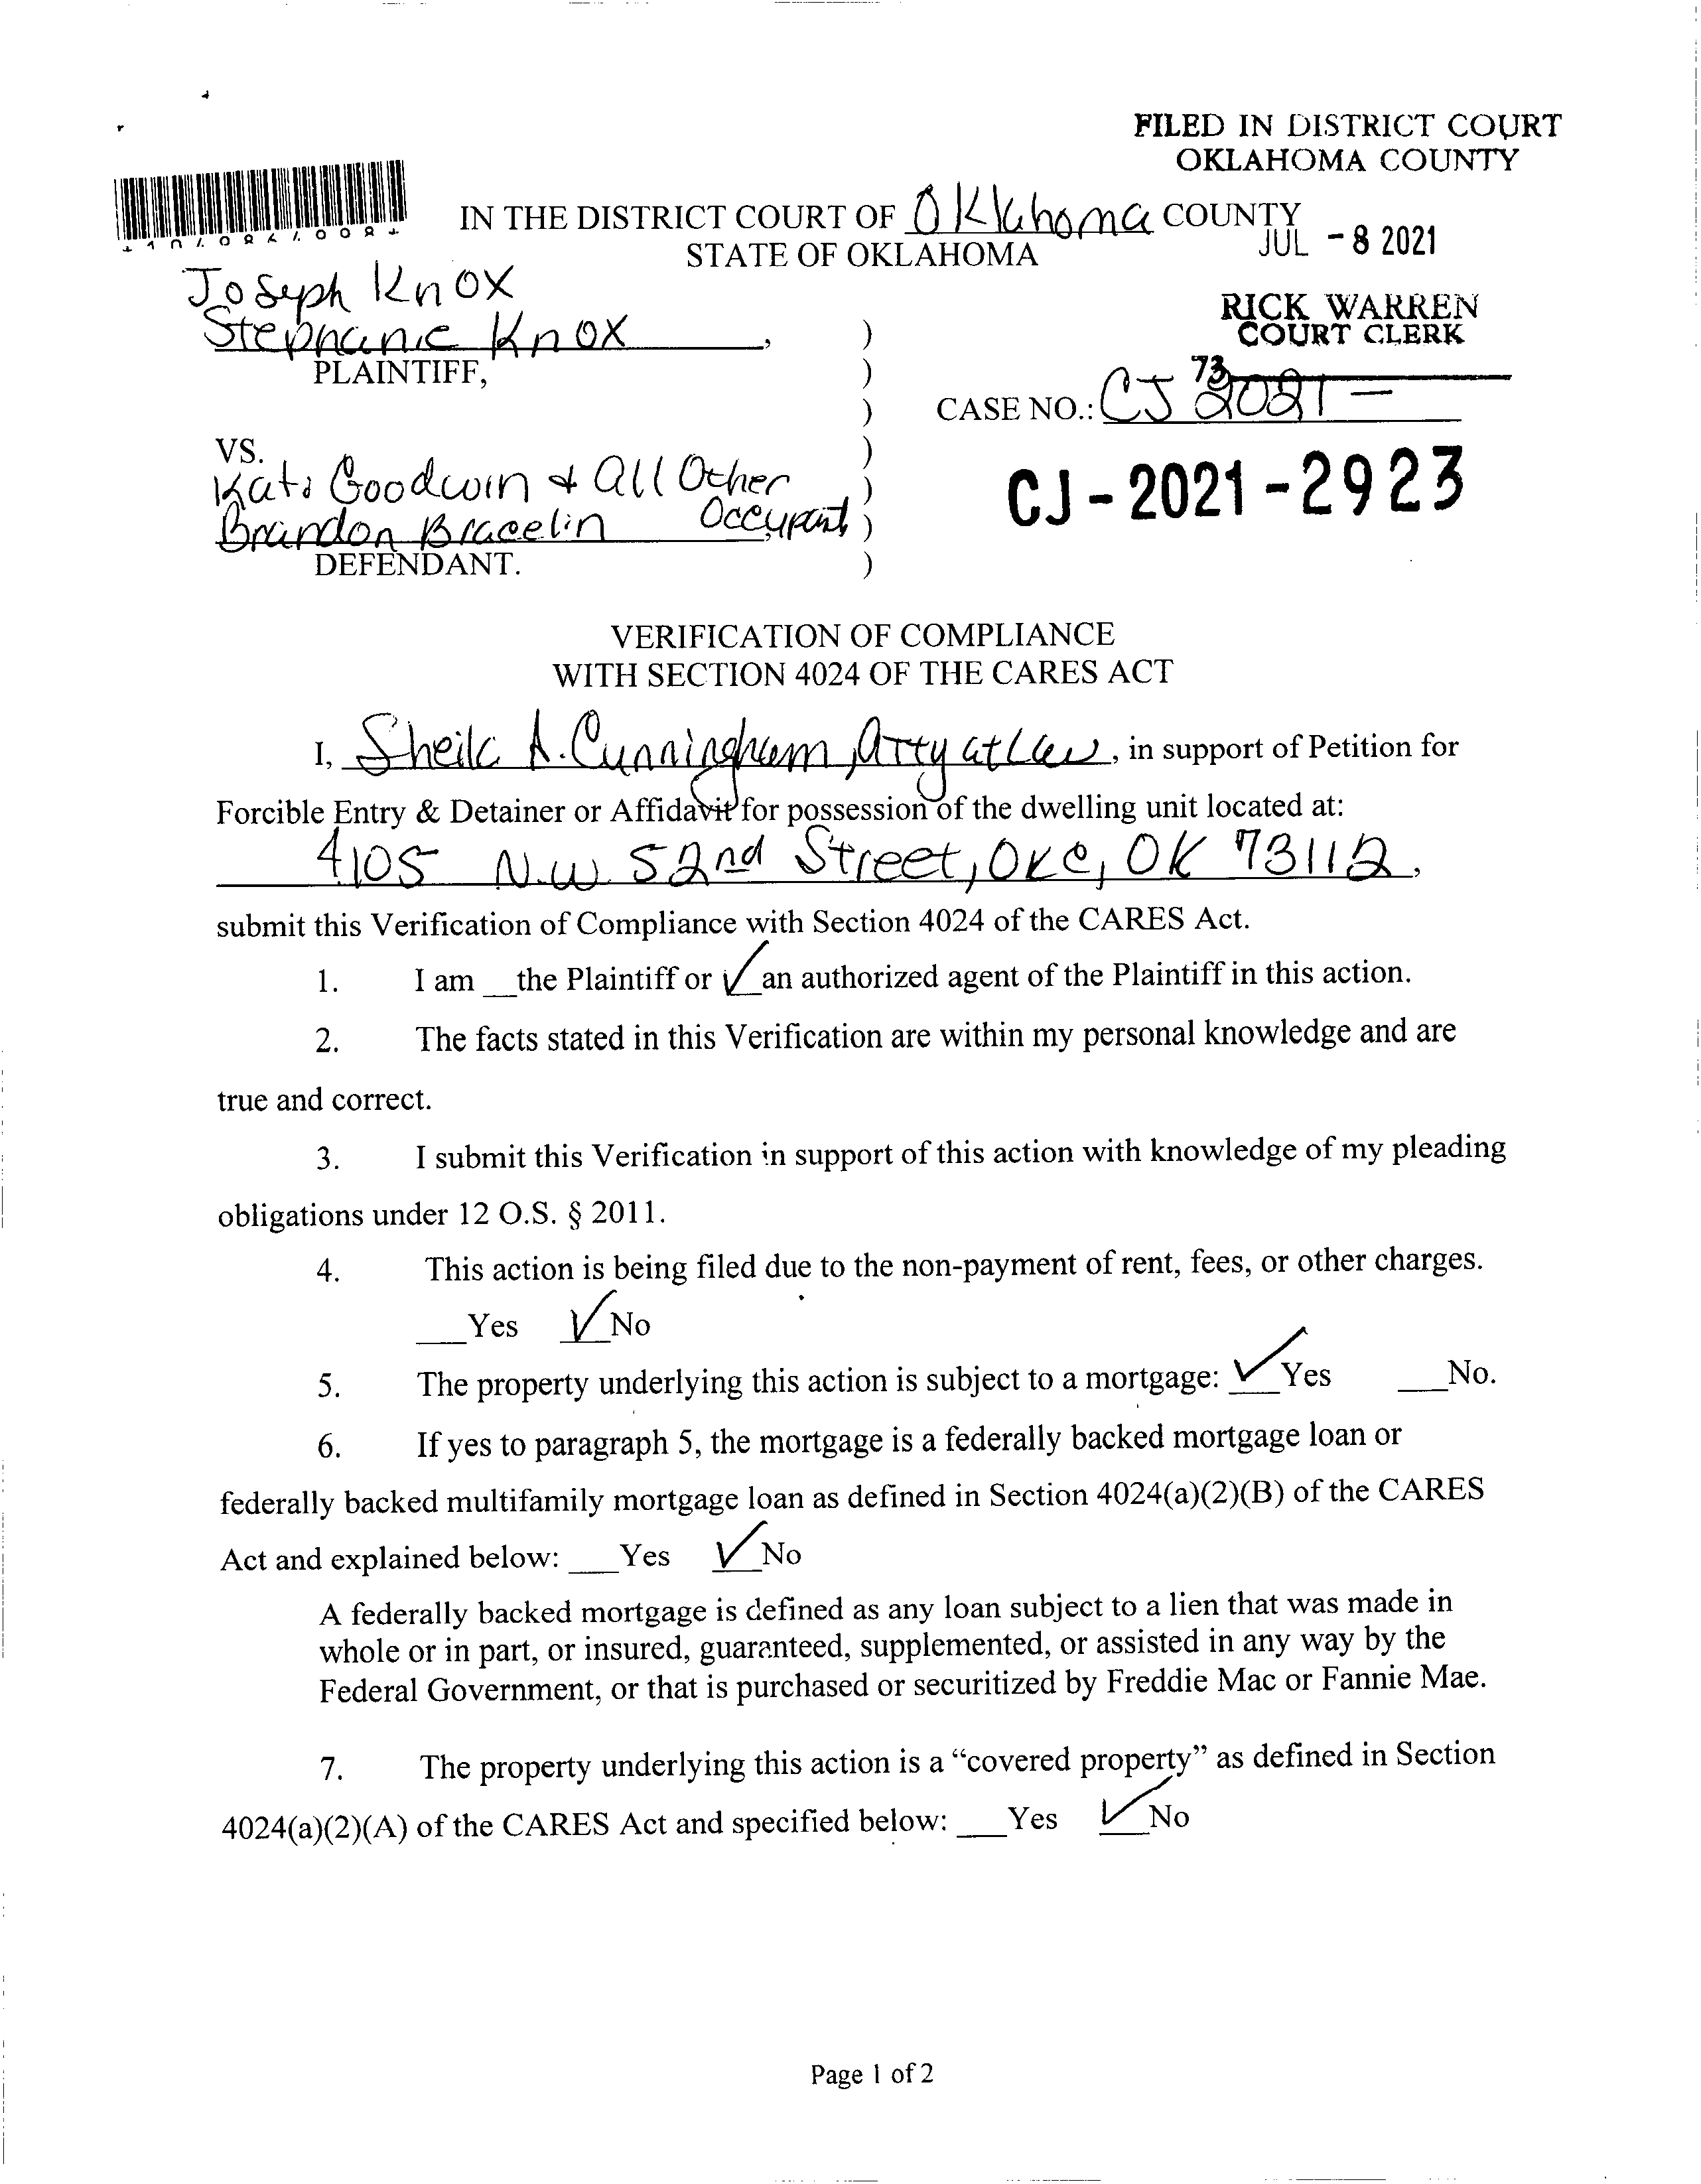 FILED IN DISTRICT COURT
OKLAHOMA COUNTY
IN THE DISTRICT COURT OF Oklahoma COUNTY
JUL - 8 2021
STATE OF OKLAHOMA
Joseph Knox
RICK WARREN
Stephanie Knox , )
COURT CLERK
PLAINTIFF, )
73
) CASE NO.: CJ 2021 -
VS. )
Kati Goodwin & All Other )
CJ-2021-2923
Brandon Bracelin Occupant )
DEFENDANT. )
VERIFICATION OF COMPLIANCE
WITH SECTION 4024 OF THE CARES ACT
I, Sheila A. Cunningham, Atty at Law, in support of Petition for
Forcible Entry & Detainer or Affidavit for possession of the dwelling unit located at:
4105 N.W. 52nd Street, OKC, OK 73112,
submit this Verification of Compliance with Section 4024 of the CARES Act.
1. I am __the Plaintiff or ✓ an authorized agent of the Plaintiff in this action.
2. The facts stated in this Verification are within my personal knowledge and are
true and correct.
3. I submit this Verification in support of this action with knowledge of my pleading
obligations under 12 O.S. § 2011.
4. This action is being filed due to the non-payment of rent, fees, or other charges.
___Yes ✓ No
5. The property underlying this action is subject to a mortgage: ✓ Yes ___No.
6. If yes to paragraph 5, the mortgage is a federally backed mortgage loan or
federally backed multifamily mortgage loan as defined in Section 4024(a)(2)(B) of the CARES
Act and explained below: ___Yes ✓ No
A federally backed mortgage is defined as any loan subject to a lien that was made in
whole or in part, or insured, guaranteed, supplemented, or assisted in any way by the
Federal Government, or that is purchased or securitized by Freddie Mac or Fannie Mae.
7. The property underlying this action is a “covered property” as defined in Section
4024(a)(2)(A) of the CARES Act and specified below: ___Yes ✓ No
Page 1 of 2